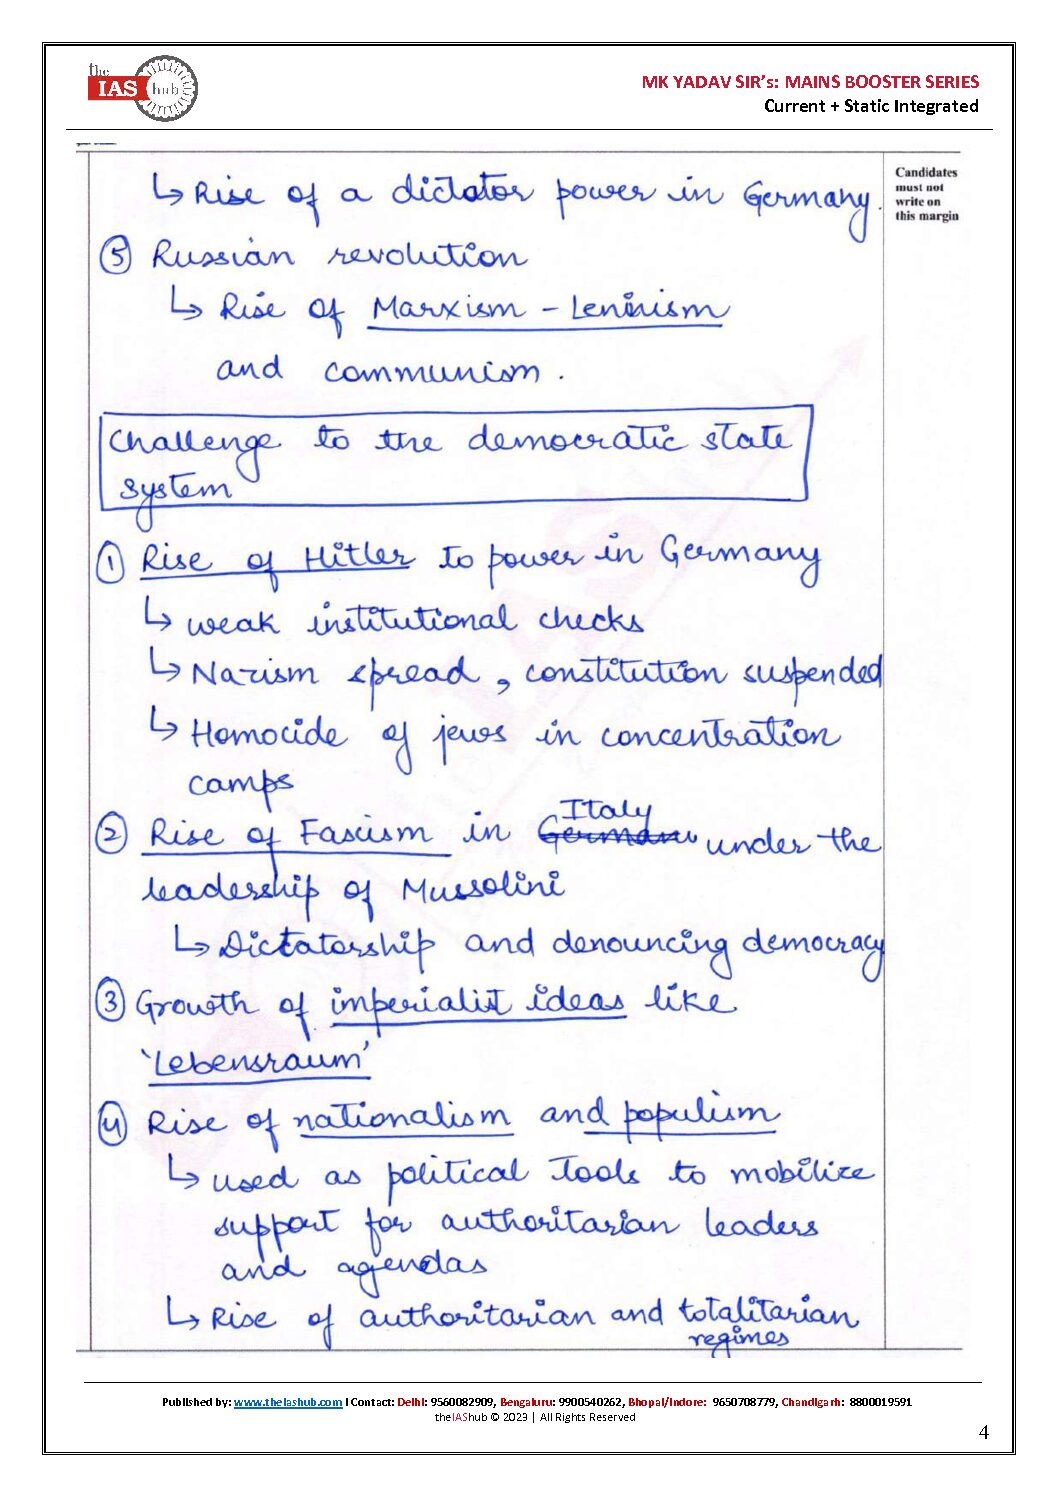 the
IAS hub
MK YADAV SIR's: MAINS BOOSTER SERIES
Current + Static Integrated
Candidates
must not
write on
this margin
↳ Rise of a dictator power in Germany.
⑤ Russian revolution
↳ Rise of Marxism - Leninism
and communism.
Challenge to the democratic state
system
① Rise of Hitler to power in Germany
↳ weak institutional checks
↳ Nazism spread, constitution suspended
↳ Homocide of jews in concentration
camps
② Rise of Fascism in Italy under the
leadership of Mussolini
↳ Dictatorship and denouncing democracy
③ Growth of imperialist ideas like
'Lebensraum'
④ Rise of nationalism and populism
↳ used as political tools to mobilize
support for authoritarian leaders
and agendas
↳ Rise of authoritarian and totalitarian
regimes
Published by: www.theiashub.com I Contact: Delhi: 9560082909, Bengaluru: 9900540262, Bhopal/Indore: 9650708779, Chandigarh: 8800019591
theIAShub © 2023 | All Rights Reserved
4